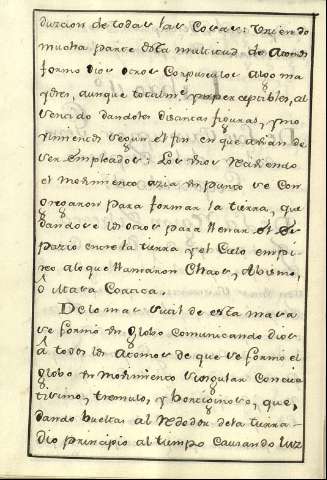 duccion de todas las Cosas: Uniendo
mucha parte desta multitud de Atomos
formo Dios otros Corpusculos algo ma
yores, aunque totalmᵉ ymperceptibles, al
vencido dandoles distintas figuras, y mo
vimientos segun el fin en que avian de
ser empleados: Los unos
el movimiento azia un punto se Con
gregaron para formar la tierra, que
dandose los otros para llenar el es
pazio entre la tierra y el Cielo empi
reo aloque llamaron Chaos, Abismo,
ô
De lo mas sutil de esta masa
se formó un globo comunicando Dios
â todos los Atomos de que se formó el
globo un movimiento singular
tissimo, tremulo, y bertiginoso, que,
dando bueltas al Rededor dela tierra
dio principio al tiempo Causando luz